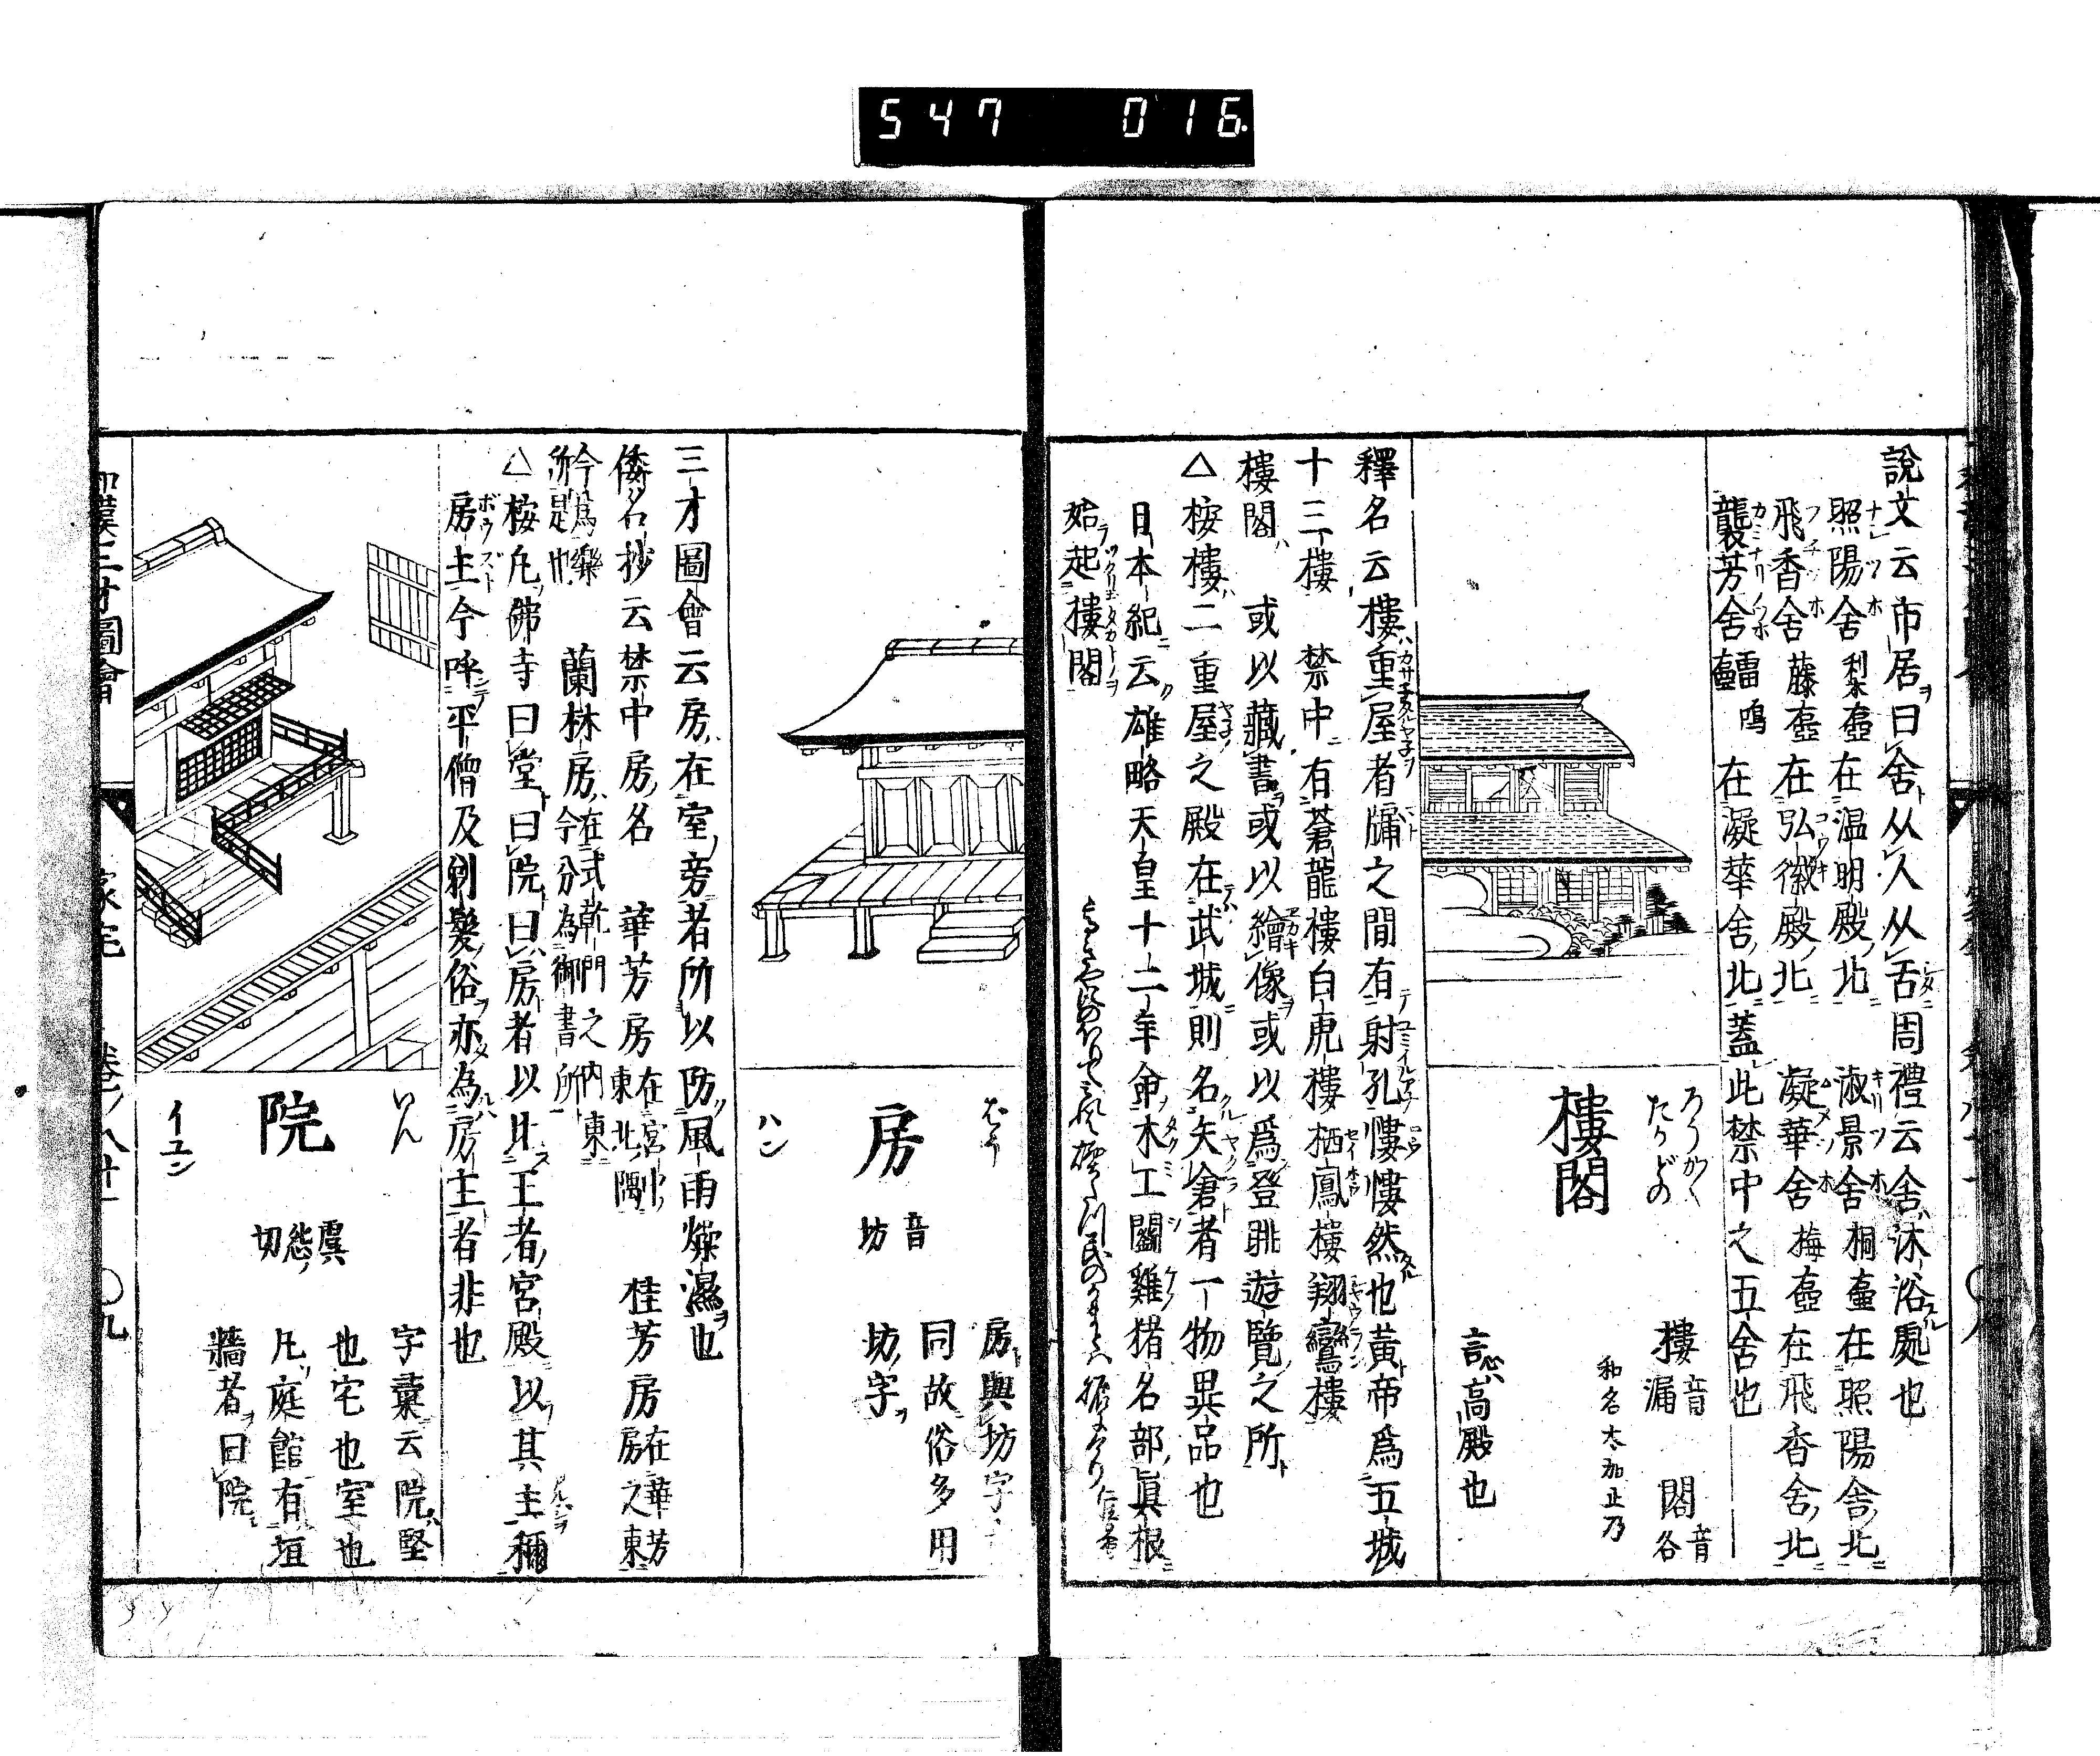 547 016
說文云市居曰舍从人从舌周禮云舍沐浴處也
照陽舍梨壺在温明殿北 淑景舍桐壷在照陽舎北
飛香舎藤壺在弘徽殿北 凝華舍梅壺在飛香舎北
襲芳舍雷鳴壺在凝華舎北蓋此禁中之五舍也
ろうかく
たかどの
樓閣
樓音漏 閣音各
和名太加止乃
言高殿也
釋名云樓重屋者牖之間有射孔慺慺然也黃帝爲五城
十二樓 禁中有蒼龍樓白虎樓栖鳳樓翔鸞樓
樓閣 或以藏書或以繪像或以爲登眺遊覽之所
△ 桉樓二重屋之殿在武城則名矢倉者一物異品也
日本紀云雄略天皇十二年命木工闘雞猪名部眞根
始起樓閣
房
ハン
音坊
房與坊字
同故俗多用
坊字
三才圖會云房在室旁者所以防風雨燥濕也
倭名抄云禁中房名 華芳房在宮中東北隅 桂芳房在華芳房之東
今爲樂所是也 蘭林房在式乾門之内東今分為御書所
△ 桉凡佛寺曰堂曰院曰房者以比王者宮殿以其主稱
房主今呼平僧及剃髮俗亦為房主者非也
いん
院
イユン
虞怨切
字彙云院堅
也宅也室也
凡庭館有垣
牆者曰院
和漢三才圖會 家宅 卷ノ八十一 〇九